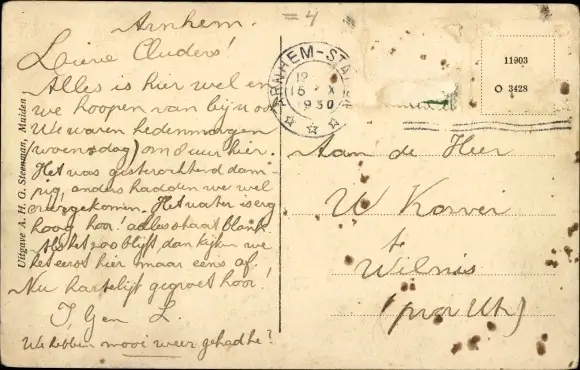 Arnhem.
Lieve Ouders!
Alles is hier wel en
we hoopen van bij u oo
We waren hedenmorgen
(woensdag) om 8 uur hier.
Het was gisterochtend damp
pig, anders hadden we wel
overgekomen. Het water is erg
hoog hoor! alles staat blank.
Als het zoo blijft dan kijken we
het eerst hier maar eens af.
Nu hartelijk gegroet hoor!
J. G en L.
We hebben mooi weer gehad he?
Uitgave A. H. G. Steenman, Muiden
= 4
ARNHEM-STA
12
15 X
1930
11903
O 3428
Aan de Heer
W Korver
te
Wilnis
(prov Utr)